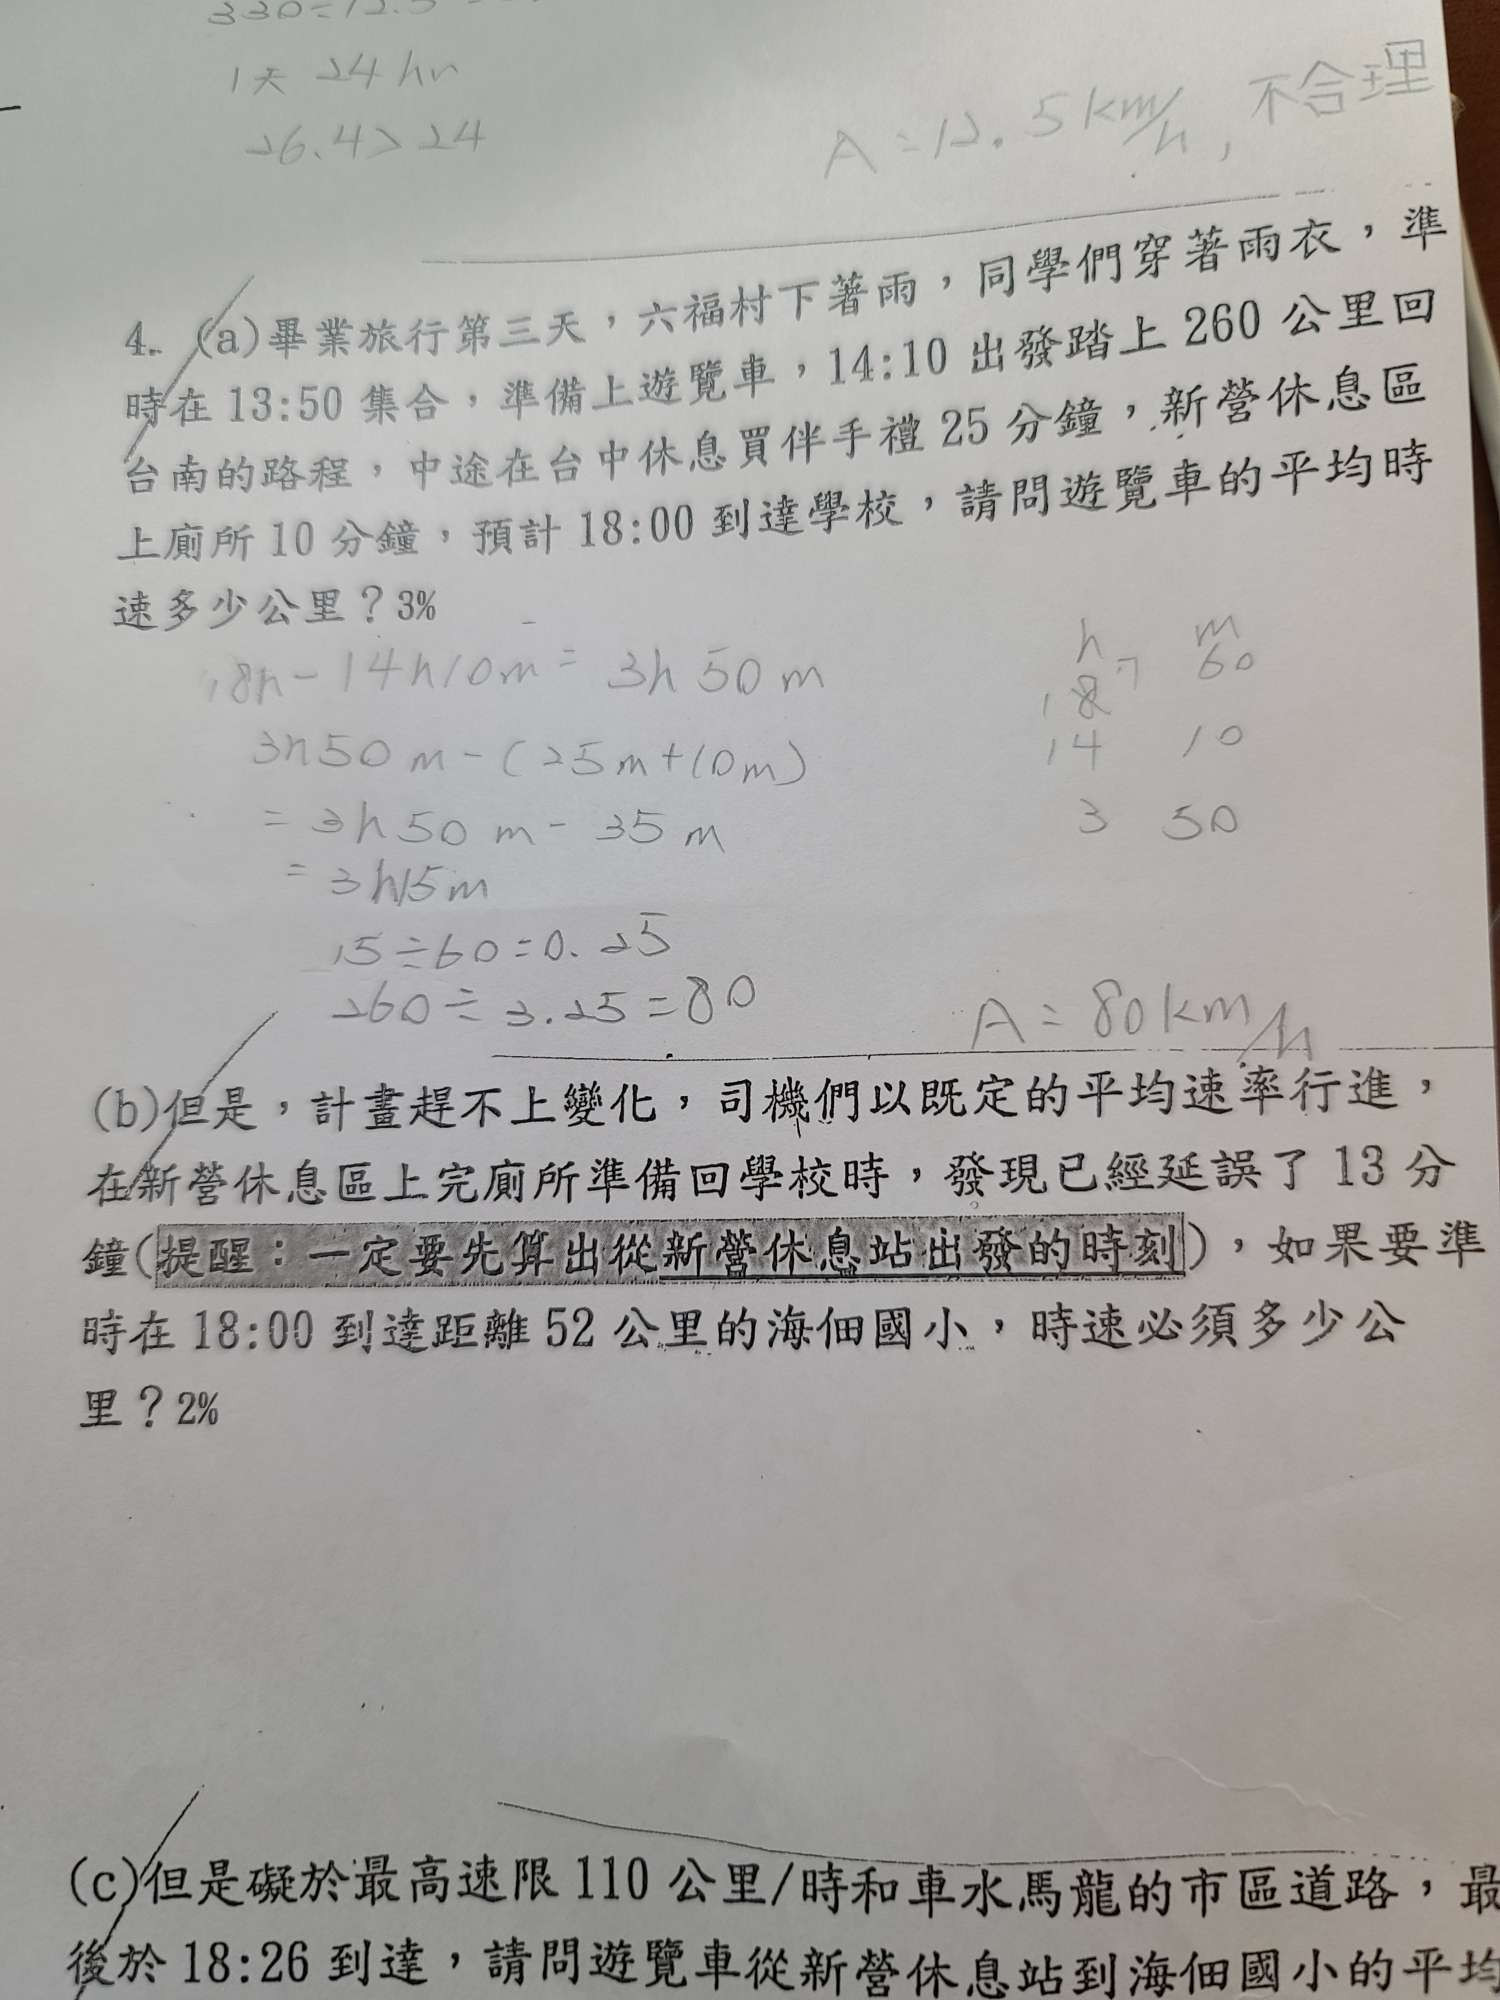 330÷12.5
1天 24hr
26.4>24
A=12.5km/h,不合理
4. (a)畢業旅行第三天，六福村下著雨，同學們穿著雨衣，準
時在 13:50 集合，準備上遊覽車，14:10 出發踏上 260 公里回
台南的路程，中途在台中休息買伴手禮 25 分鐘，新營休息區
上廁所 10 分鐘，預計 18:00 到達學校，請問遊覽車的平均時
速多少公里？3%
18h-14h10m=3h50m
3h50m-(25m+10m)
=3h50m-35m
=3h15m
15÷60=0.25
260÷3.25=80
h m
18 7 60
14 10
3 50
A=80km/h
(b)但是，計畫趕不上變化，司機們以既定的平均速率行進，
在新營休息區上完廁所準備回學校時，發現已經延誤了 13 分
鐘(提醒：一定要先算出從新營休息站出發的時刻)，如果要準
時在 18:00 到達距離 52 公里的海佃國小，時速必須多少公
里？2%
(c)但是礙於最高速限 110 公里/時和車水馬龍的市區道路，最
後於 18:26 到達，請問遊覽車從新營休息站到海佃國小的平均